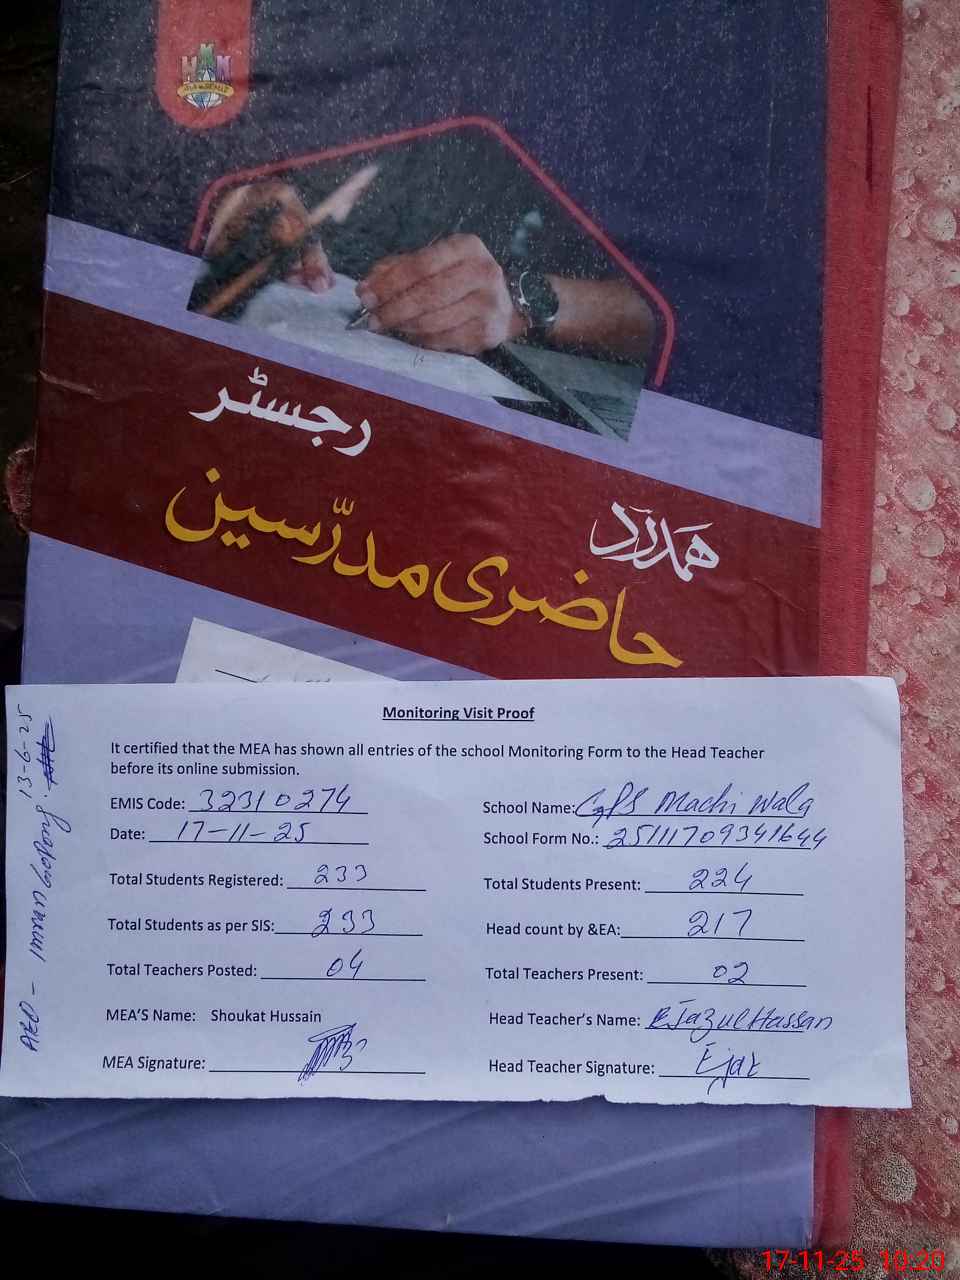 رجسٹر
ہمدرد
حاضری مدرّسین
Monitoring Visit Proof
It certified that the MEA has shown all entries of the school Monitoring Form to the Head Teacher
before its online submission.
EMIS Code: 32310274 School Name: GPS Machi Wala
Date: 17-11-25 School Form No.: 25111709341644
Total Students Registered: 233 Total Students Present: 224
Total Students as per SIS: 233 Head count by &EA: 217
Total Teachers Posted: 04 Total Teachers Present: 02
MEA'S Name: Shoukat Hussain Head Teacher's Name: Ejazul Hassan
MEA Signature: Head Teacher Signature: Ejaz
AEO - Imran 13-6-25
17-11-25 10:20